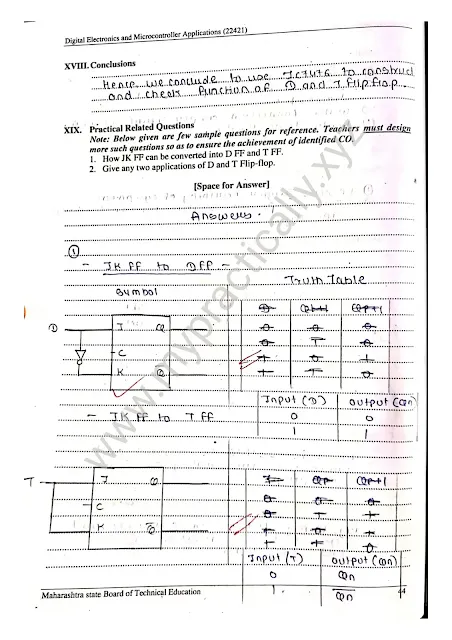 Digital Electronics and Microcontroller Applications (22421)
XVIII. Conclusions
Hence we conclude to use IC7476 to construct
and check function of D and T flip.flop.
XIX. Practical Related Questions
Note: Below given are few sample questions for reference. Teachers must design
more such questions so as to ensure the achievement of identified CO.
1. How JK FF can be converted into D FF and T FF.
2. Give any two applications of D and T Flip-flop.
[Space for Answer]
Answers.
①
- JK FF to DFF -
Truth Table
symbol
D J Q
C
K Q̅
Input (D) output (Qn)
0 0
1 1
- JK FF to T FF
T J Q
C
K Q̅
Input (T) output (Qn)
0 Qn
1 Q̅n
Maharashtra state Board of Technical Education
www.mypractically.xyz